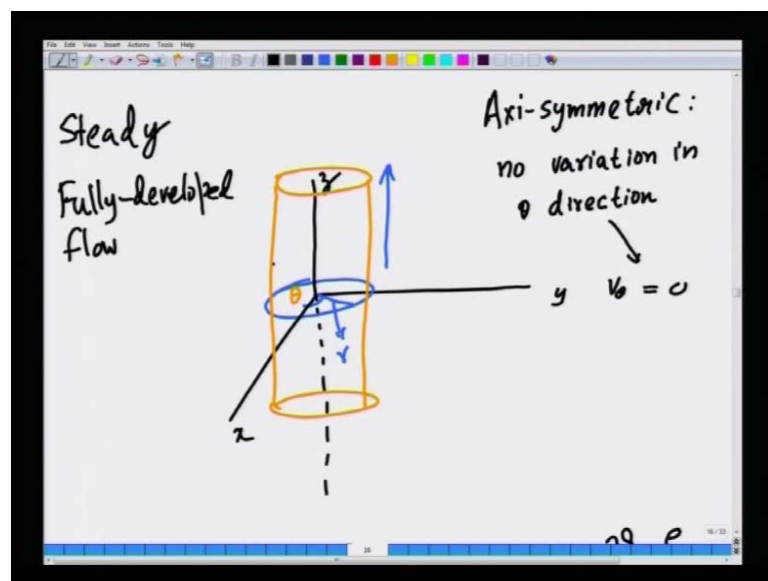 File Edit View Insert Actions Tools Help
Steady
Fully-developed
flow
Axi-symmetric:
no variation in
θ direction
Vθ = 0
z
θ
r
y
x
16/33
16